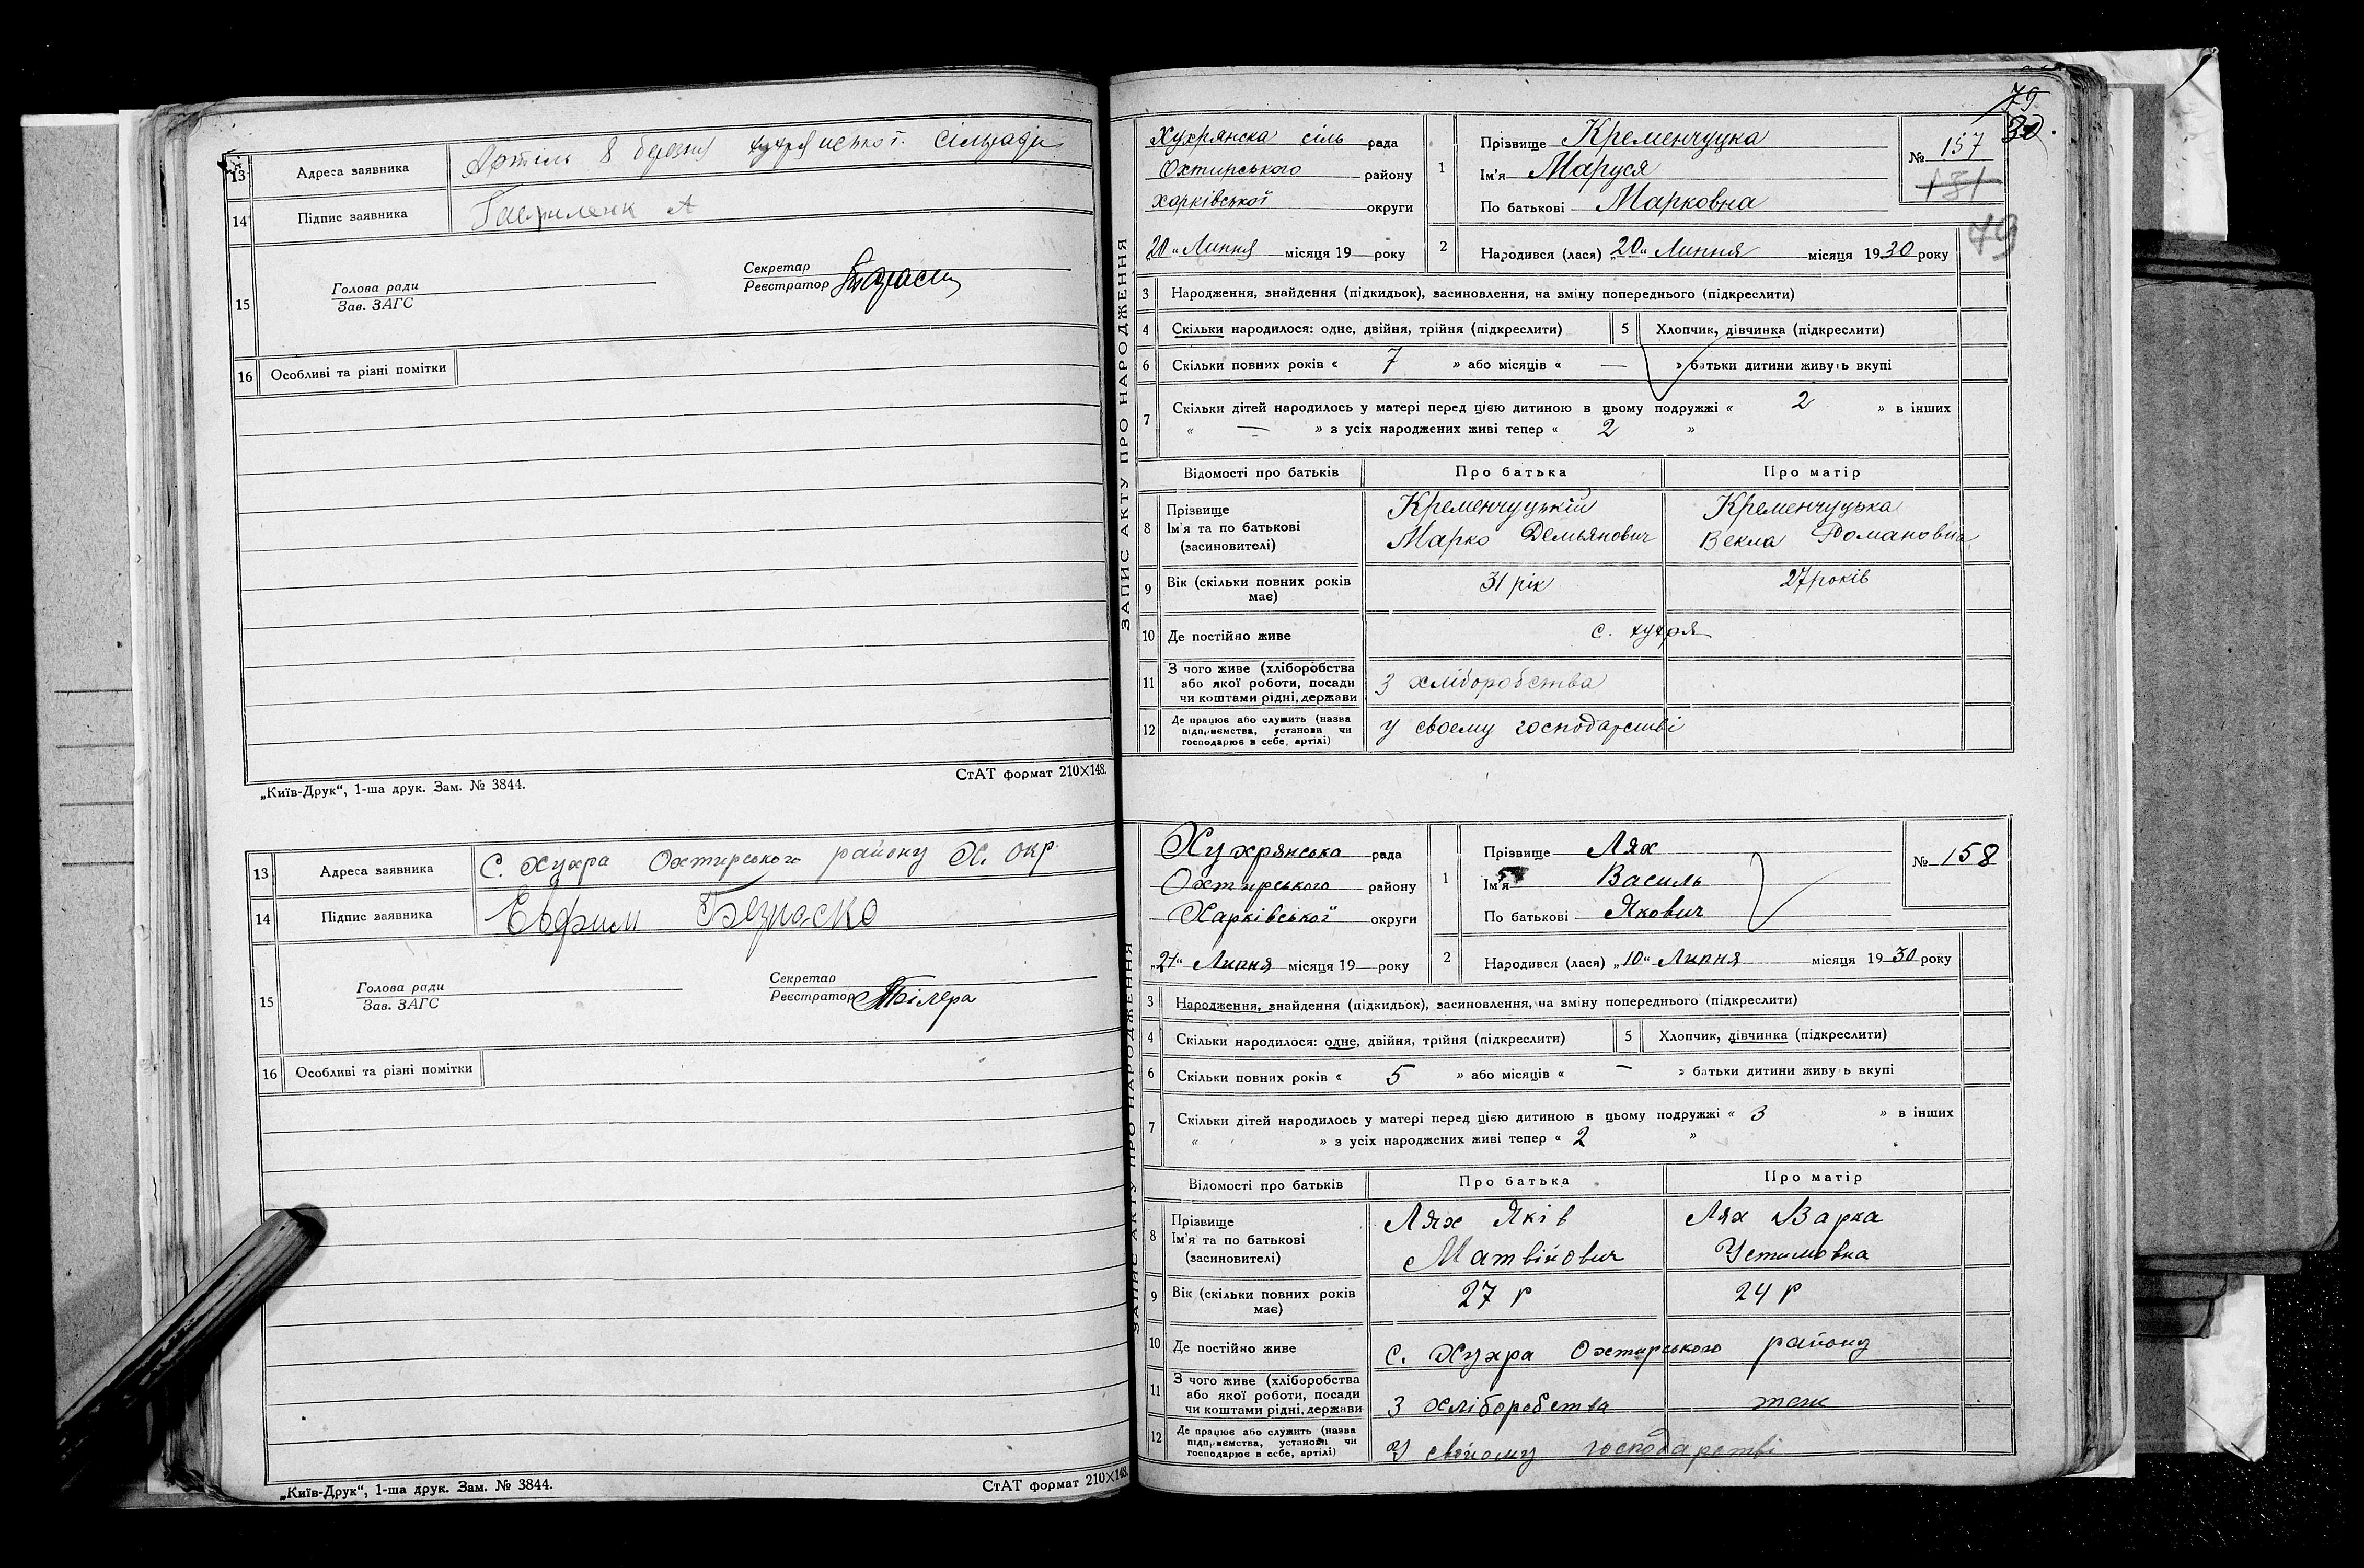 13 Адреса заявника Артіль 8 березня Хухрянської сільради
14 Підпис заявника Гавриленк А
15 Голова ради
Зав. ЗАГС
Секретар
Реєстратор
16 Особливі та різні помітки
„Київ-Друк“, 1-ша друк. Зам. № 3844.
СтАТ формат 210×148.
13 Адреса заявника С. Хухра Охтирського району Х. окр
14 Підпис заявника Евфим Безпаско
15 Голова ради
Зав. ЗАГС
Секретар
Реєстратор
16 Особливі та різні помітки
„Київ-Друк“, 1-ша друк. Зам. № 3844.
СтАТ формат 210×148.
79
30
ЗАПИС АКТУ ПРО НАРОДЖЕННЯ
Хухрянска сіль рада
Охтирського району
Харківської округи
„20“ Липня місяця 19 року
1 Прізвище Кременчуцка
Ім'я Маруся
По батькові Марковна
№ 157
131
79
2 Народився (лася) „20“ Липня місяця 1930 року
3 Народження, знайдення (підкидьок), засиновлення, на зміну попереднього (підкреслити)
4 Скільки народилося: одне, двійня, трійня (підкреслити) 5 Хлопчик, дівчинка (підкреслити)
6 Скільки повних років « 7 » або місяців « — » батьки дитини живуть вкупі
7 Скільки дітей народилось у матері перед цією дитиною в цьому подружжі « 2 » в інших
« — » з усіх народжених живі тепер « 2 »
Відомості про батьків Про батька Про матір
8 Прізвище Ім'я та по батькові (засиновителі)
Кременчуцький Марко Демьянович
Кременчуцька Векла Романовна
9 Вік (скільки повних років має) 31 рік 27 років
10 Де постійно живе с. Хухря
11 З чого живе (хліборобства або якої роботи, посади чи коштами рідні, держави З хліборобства
12 Де працює або служить (назва підприємства, установи чи господарює в себе, артілі) У своему господарстві
ЗАПИС АКТУ ПРО НАРОДЖЕННЯ
Хухрянська рада
Охтирського району
Харківської округи
„21“ Липня місяця 19 року
1 Прізвище Лях
Ім'я Василь
По батькові Якович
№ 158
2 Народився (лася) „10“ Липня місяця 1930 року
3 Народження, знайдення (підкидьок), засиновлення, на зміну попереднього (підкреслити)
4 Скільки народилося: одне, двійня, трійня (підкреслити) 5 Хлопчик, дівчинка (підкреслити)
6 Скільки повних років « 5 » або місяців « — » батьки дитини живу ь вкупі
7 Скільки дітей народилось у матері перед цією дитиною в цьому подружжі « 3 » в інших
« » з усіх народжених живі тепер « 2 »
Відомості про батьків Про батька Про матір
8 Прізвище Ім'я та по батькові (засиновителі)
Лях Яків Матвійович
Лях Варка Устимовна
9 Вік (скільки повних років має) 27 р 24 р
10 Де постійно живе с. Хухра Охтирського району
11 З чого живе (хліборобства або якої роботи, посади чи коштами рідні, держави З хліборобства теж
12 Де працює або служить (назва підприємства, установи чи господарює в себе, артілі) У свойому господарстві